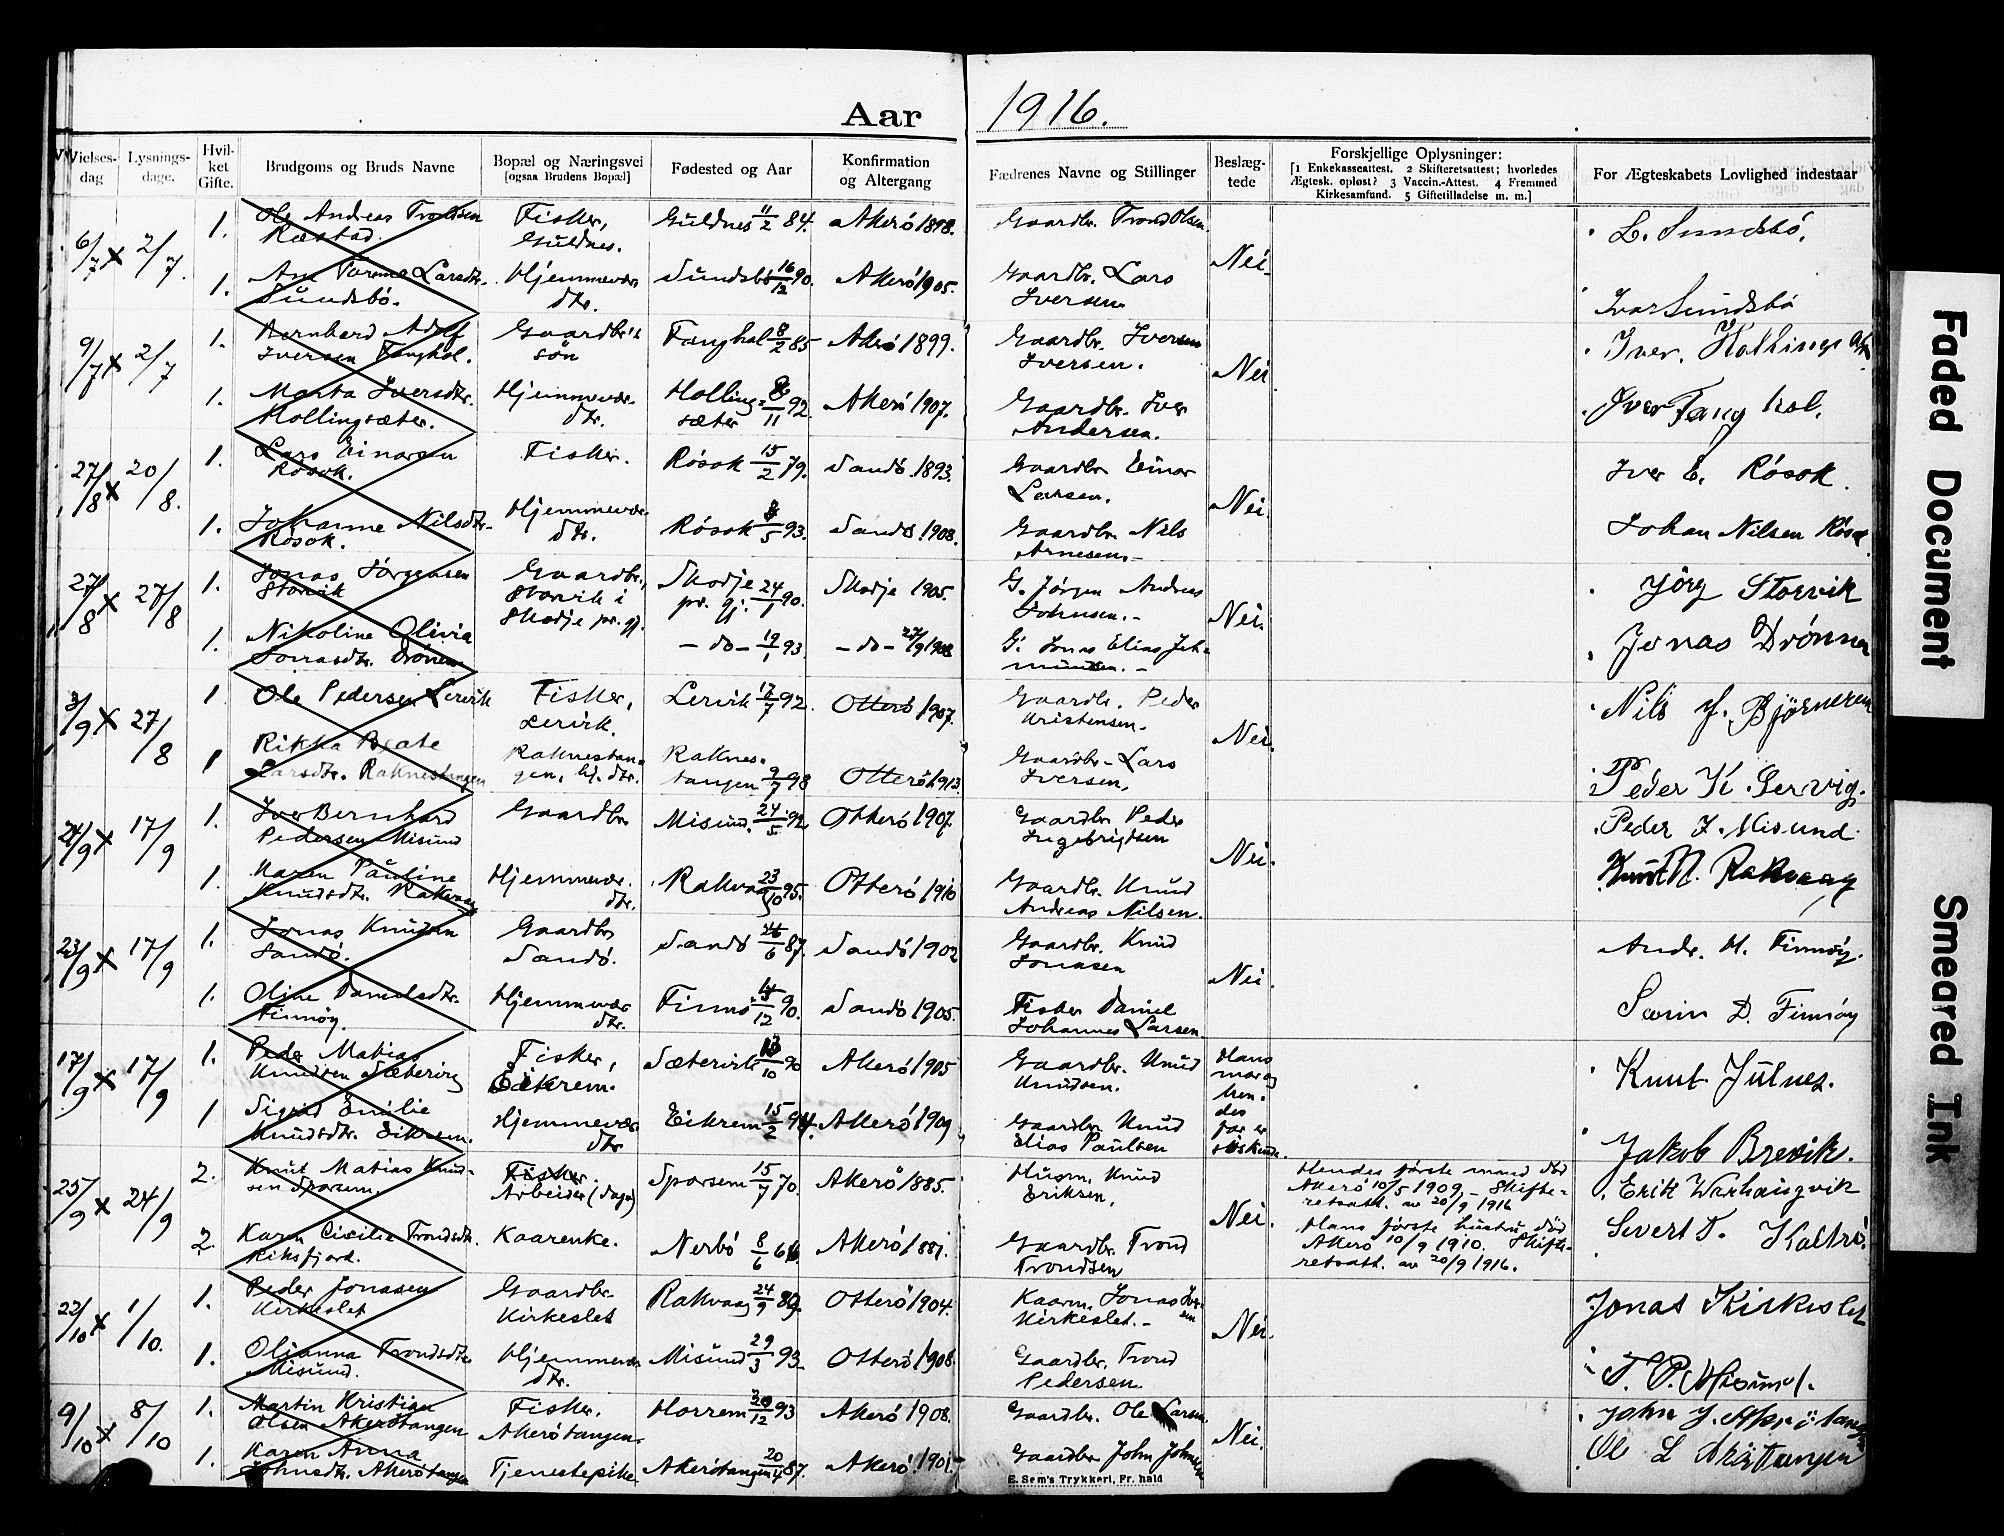 Aar 1916.
Vielses-dag
Lysnings-dage.
Hvilket Gifte.
Brudgoms og Bruds Navne
Bopæl og Næringsvei [ogsaa Brudens Bopæl]
Fødested og Aar
Konfirmation og Altergang
Fædrenes Navne og Stillinger
Beslæg-tede
Forskjellige Oplysninger: [1 Enkekasseattest. 2 Skifteretsattest; hvorledes Ægtesk. opløst? 3 Vaccin.-Attest. 4 Fremmed Kirkesamfund. 5 Giftetilladelse m. m.]
For Ægteskabets Lovlighed indestaar
6/7 x 2/7. 1. Ole Andreas Trondsen Rastad. Fisker, Guldnes. Guldnes 11/2 84. Akerö 1898. Gaardbr. Trond Olsen. Nei. L. Sundsbö.
1. Ane Larsdtr. Sundsbö. Hjemmevær. dtr. Sundsbö 16/12 90. Akerö 1905. Gaardbr. Lars Iversen Ivar Sundsbö
9/7 x 2/7 1. Bernhard Adolf Iversen Tanghol. Gaardbr's sön Tanghol 8/2 85 Akerö 1899. Gaardbr. Iversen Iversen. Nei Iver.
1. Marta Iversdtr. Hollingsæter. Hjemmevær. dtr. Hollingsæter 8/11 92 Akerö 1907. Gaardbr. Iver Andersen. Iver Tanghol.
27/8 x 20/8. 1. Lars Einarsen Rösok. Fisker. Rösok 15/2 79. Sandö 1893. Gaardbr Einar Larsen. Nei. Iver E. Rösok.
1. Johanne Nilsdtr. Rösok. Hjemmevær. dtr. Rösok 8/5 93. Sandö 1908. Gaardbr Nils Arnesen.- Johan Nilsen
27/8 x 27/8 1. Jonas Jörgensen Storvik Gaardbr, Storvik i Skodje pr. gj. Skodje pr. gj. 24/1 90. Skodje 1905. G. Jørgen Andreas Johnsen.- Nei. Jörg Storvik
1. Nikoline Olivia Jonasdtr. Drönen -do- 19/1 93. -do- 27/9 1908 G. Jonas Elias Jetmundsen.- Jonas Drönnen
3/9 x 27/8 1 Ole Pedersen Lervik Fisker, Lervik. Lervik 17/7 92. Otterö 1907. Gaardbr. Peder Kristensen. Nei. Nils Björneren
1 Rikka Agate Larsdtr. Raknestangen Raknestangen, hj. dtr. Raknestangen 9/7 98 Otterö 1913. Gaardbr- Lars Iversen. Peder K. Lervig.
24/9 x 17/9 1. Iver Bernhard Pedersen Misund Gaardbr Misund. 24/5 92 Otterö 1907. Gaardbr Peder Ingebrigtsen Nei. Peder J. Misund
1. Karen Pauline Knudsdtr. Rakvaag Hjemmevær. dtr. Rakvaag 23/10 95. Otterö 1910 Gaardbr. Knud Andreas Nilsen. Knut N. Rakvaag
23/9 x 17/9 1. Jonas Knudsen Sandö. Gaardbr Sandö. Sandö /6 87. Sandö 1902 Gaardbr. Knud Jonasen Nei. Andr. H. Finnöy.
1. Oline Danielsdtr. Finnöy. Hjemmevær dtr. Finnö /12 90. Sandö 1905. Fisker Daniel Johannes Larsen. D. Finnöy
17/9 x 17/9 1. Peder Matias Knudsen Sætervik Fisker, Eikrem. Sætervik /10 90 Akerö 1905 Gaardbr. Knud Knudsen. Hans mor og hendes far er söskende. Knut Julnes.
1 Sigrid Emilie Knudsdtr. Eikrem. Hjemmevær dtr Eikrem 15/2 94. Akerö 1909 Gaardbr Knud Elias Paulsen Jakob Brevik.
25/9 x 24/9 2. Knut Matias Knudsen Sporsem. Fisker. Arbeider (dags) Sporsem 15/7 70. Akerö 1885. Husm. Knud Eriksen. Nei. Hendes förste mand död Akerö 10/5 1909 - Skifteretsatt. av 20/9 1916 Erik Varhaugvik
2 Karen Cicilie Trondsdtr. Riksfjord. Kaarenke. Nerbö 8/6 6 Akerö 1881. Gaardbr. Trond Trondsen Hans förste hustru död Akerö 10/9 1910. Skifteretsatt. av 20/9 1916. Sivert T.
22/10 x 1/10. 1. Peder Jonasen Kirkeslet Gaardbr. Kirkeslet Rakvaag 24/9 89. Otterö 1904. Kaarm. Jonas Iversen Kirkeslet.- Nei. Jonas Kirkeslet
1. Olianna Trondsdtr. Misund. Hjemmevær dtr. Misund 29/3 93. Otterö 1908. Gaardbr. Trond Pedersen T. P. Misund.
9/10 x 8/10 1. Martin Kristian Olsen Akerötangen Fisker, Akerötangen. Horrem 30/12 93 Akerö 1908. Gaardbr. Ole Larsen Nei. John J.
1. Karen Anna Johnsdtr. Akerötangen Tjenestepike. Akerötangen 20/4 87. Akerö 1901. Gaardbr John Johnsen Ol L
E. Sem's Trykkeri, Fr. hald
Faded Document
Smeared Ink